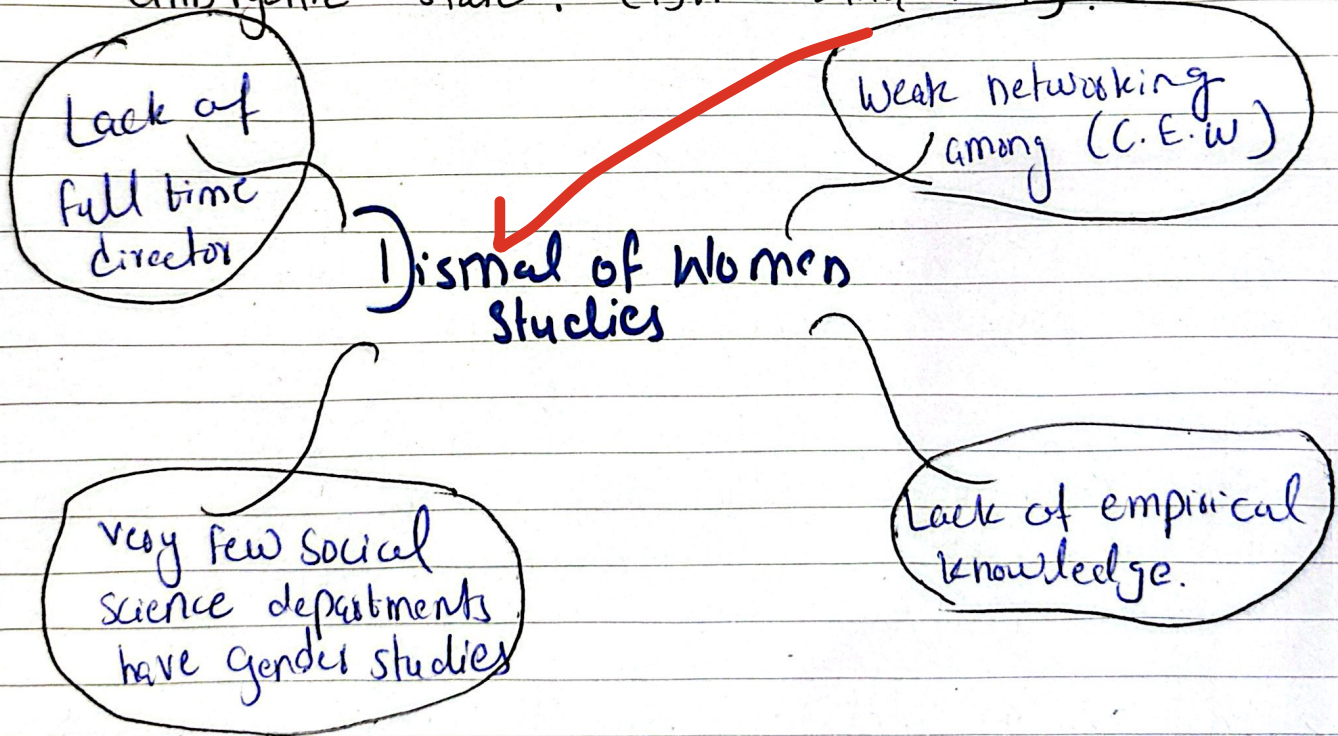 Lack of
full time
director
Weak networking
among (C.E.W)
Dismal of Women
Studies
very few social
science departments
have Gender studies
Lack of empirical
knowledge.